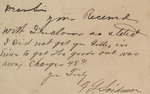 Dear Sir
your Received
with Enclosure as stated
I did not get your letter in
time to get the goods out was
away. Charges 48¢
Yrs Truly